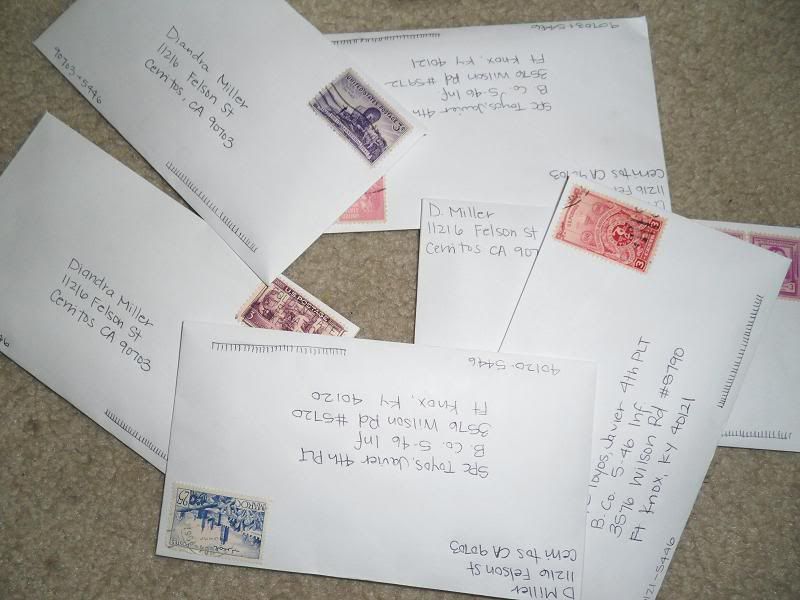 Diandra Miller
11216 Felson St
Cerritos, CA 90703
90703-5446
3¢
90703-5446
SPC Toyos, Javier 4th
B Co. 5-46 Inf
3576 Wilson Rd #5972
Ft Knox, KY 40121
11216 Fel
Cerritos CA 90703
D. Miller
11216 Felson St
Cerritos CA 907
Diandra Miller
11216 Felson St
Cerritos CA 90703
U.S. POSTAGE
40120-5446
SPC Toyos, Javier 4th PLT
B. Co. 5-46 Inf
3576 Wilson Rd #5720
Ft Knox, KY 40120
D Miller
11216 Felson St
Cerritos CA 90703
MAROC
25
3
3
Toyos, Javier 4th PLT
B. Co. 5-46 Inf.
3576 Wilson Rd #8790
Ft Knox, KY 40121
121-5446
3